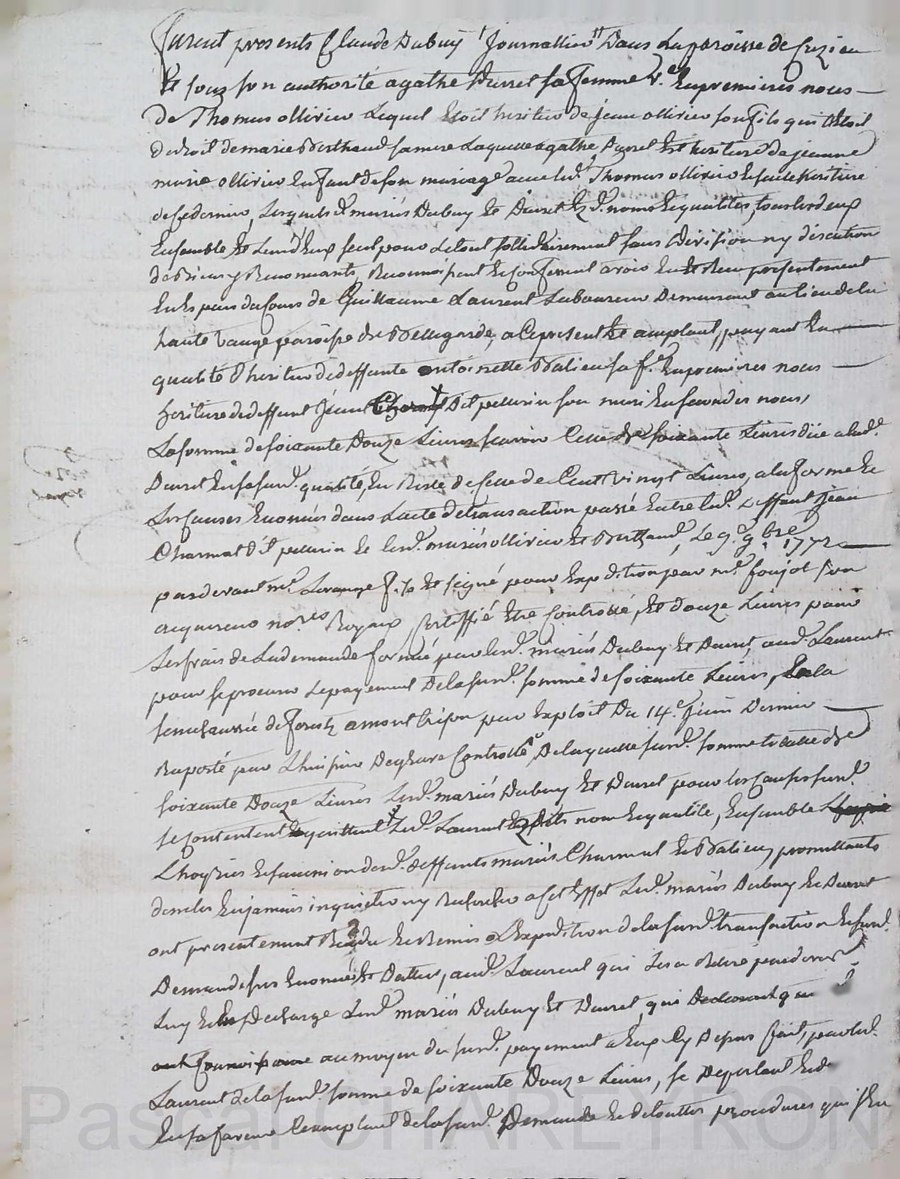 Furent presents Claude Dubuy Journallier Dans La paroisse de Cuzieu
Et sous son authorité agathe Durret sa femme Ve. En premieres noces
De Thomas ollivier Lequel Etoit heritier de jean ollivier son fils qui Letoit
de marie Berthaud sa mere Laquelle agathe Durret Est heritiere de jeanne
marie ollivier Enfant de son mariage avec led. Thomas ollivier
Lesquels d. mariés Dubuy Et Durret Esd. noms Et qualites, tous les deux
Ensemble Et Lun d'Eux seul pour Le tout sollidairement sans Division ny discution
de Biens y Renoncants, Reconnoissent Et confessent avoir Eu Et Reçu presentement
En Especes du Cours de Guillaume Laurent Laboureur Demeurant au Lieu de la
haute paroisse de Bellegarde, a Ce present Et acceptant, payant En
qualité d'heritier de deffunte antoinette Balieu sa fe. En premieres noces
heritiere de deffunt Jean Dit pellurin son mari En secondes noces,
La somme de soixante Douze Livres scavoir Celle de soixante Livres düe a lad.
Durret En sa susd. qualité, En Reste de celle de Cent vingt Livres, a la forme Et
Les causes Enoncés dans Lacte de transaction passé Entre led. deffunt Jean
Charmat dit pellurin Et lesd. mariés ollivier Et Berthaud, Le 9e. 9bre 1772
pardevant me. Et signé pour Expedition par me. foujot son
acquereur nores Royaux Certiffié Etre Controllé, Et douze Livres pour
Les frais de La demande formée par lesd. mariés Dubuy Et Durret, aud. Laurent
pour se procurer Le payement De la susd. somme de soixante Livres, En la
senechaussée de forest a montbrison par Exploit Du 14e. juin Dernier
Raporté par Lhuissier Controllé, De laquelle susd. somme totalle de
soixante Douze Livres Lesd. mariés Dubuy Et Durret pour les Causes susd.
se contentent Et quittent Led. Laurent Esdits nom Et qualité, Ensemble
L'hoyrie Et succession desd. deffunts mariés Charmat Et Balieu, promettants
de ne les En jamais inquietter ny Rechercher a Cet Effet Lesd. mariés Dubuy Et Durret
ont presentement Et Remis L'Expedition de la susd. transaction Et susd.
Demande sus Enoncée Et Dattée, aud. Laurent qui Les a Retiré pardevers
Luy Et En Decharge Lesd. mariés Dubuy Et Durret, qui Declarent que
au moyen du susd. payement a Eux Cy Depuis fait, par led.
Laurent de la susd. somme de soixante Douze Livres, se Departent
En sa faveur L'acceptant de la susd. Demande Et de touttes procedures qui s'En
Pascal CHAREYRON